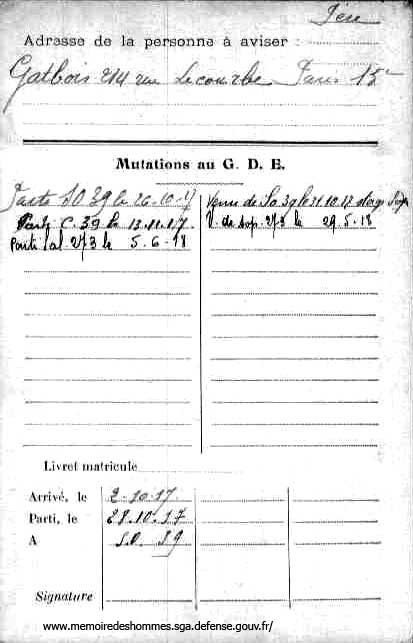 Adresse de la personne à aviser :
Gatbois 214 rue Lecourbe Paris 15e
Mutations au G. D. E.
Parti S.O 39 le 26-10-17
Parti C. 39 le 13.11.17.
Parti Sal 273 le 5.6.18
Venu de So 39 le 31.10.17 stage
V. de Sop. 273 le 29.5.18
Livret matricule
Arrivé, le 2-10-17
Parti, le 28.10.17
A S.O. 39
Signature
www.memoiredeshommes.sga.defense.gouv.fr/